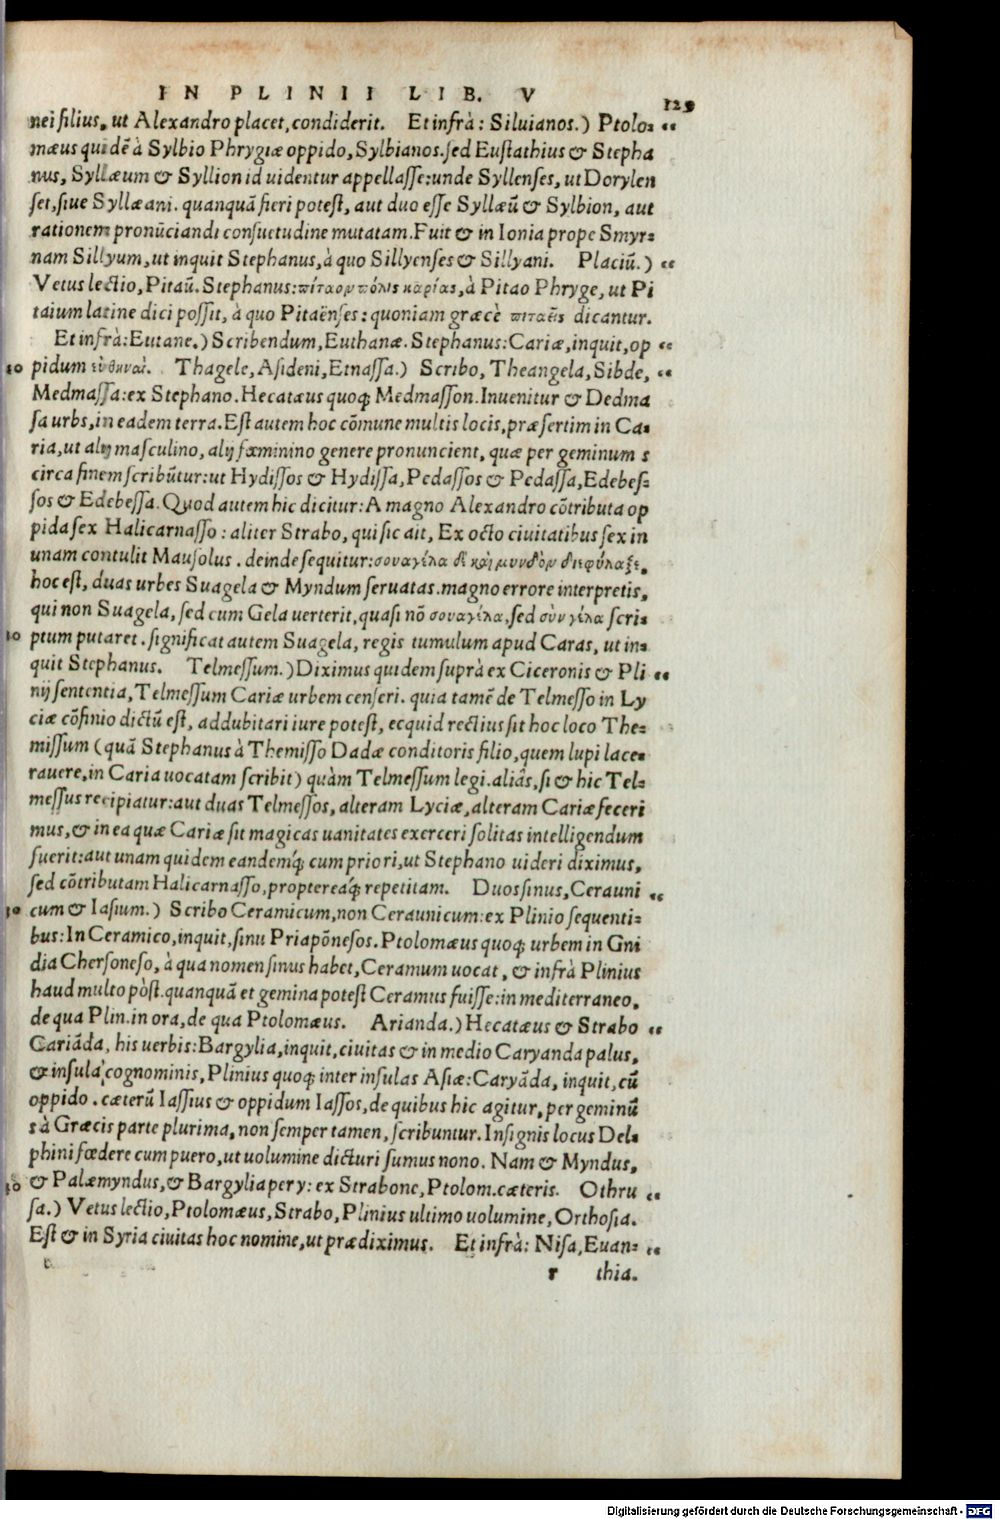 IN PLINII LIB. V
129
nei filius, ut Alexandro placet, condiderit. Et infrà: Siluianos.) Ptolo= “
mæus quidē à Sylbio Phrygiæ oppido, Sylbianos. sed Eustathius & Stepha
nus, Syllæum & Syllion id uidentur appellasse: unde Syllenses, ut Dorylen
ses, siue Syllæani. quanquā fieri potest, aut duo esse Syllæū & Sylbion, aut
rationem pronūciandi consuetudine mutatam. Fuit & in Ionia prope Smyr=
nam Sillyum, ut inquit Stephanus, à quo Sillyenses & Sillyani. Placiū.) “
Vetus lectio, Pitaū. Stephanus: πίταομ πόλις καρίας, à Pitao Phryge, ut Pi
taium latine dici possit, à quo Pitaënses: quoniam græcè πιταεῖς dicantur.
Et infrà: Eutane.) Scribendum, Euthanæ. Stephanus: Cariæ, inquit, op “
10 pidum εὐθηναί. Thagele, Asideni, Etnassa.) Scribo, Theangela, Sibde, “
Medmassa: ex Stephano. Hecatæus quoq; Medmasson. Inuenitur & Dedma
sa urbs, in eadem terra. Est autem hoc cōmune multis locis, præsertim in Ca=
ria, ut alij masculino, alij fœminino genere pronuncient, quæ per geminum s
circa finem scribūtur: ut Hydissos & Hydissa, Pedassos & Pedassa, Edebes=
sos & Edebessa. Quod autem hic dicitur: A magno Alexandro cōtributa op
pida sex Halicarnasso: aliter Strabo, qui sic ait, Ex octo ciuitatibus sex in
unam contulit Mausolus. deinde sequitur: σουαγέλα δὲ καὶ μυνδὸμ διεφύλαξε.
hoc est, duas urbes Suagela & Myndum seruatas. magno errore interpretis,
qui non Suagela, sed cum Gela uerterit, quasi nō σουαγέλα, sed σὺν γέλα scri=
20 ptum putaret. significat autem Suagela, regis tumulum apud Caras, ut in=
quit Stephanus. Telmessum.) Diximus quidem suprà ex Ciceronis & Pli “
nij sententia, Telmessum Cariæ urbem censeri. quia tamē de Telmesso in Ly
ciæ cōfinio dictū est, addubitari iure potest, ecquid rectius sit hoc loco The=
missum (quā Stephanus à Themisso Dadæ conditoris filio, quem lupi lace=
rauere, in Caria uocatam scribit) quàm Telmessum legi. aliâs, si & hic Tel=
messus recipiatur: aut duas Telmessos, alteram Lyciæ, alteram Cariæ feceri
mus, & in ea quæ Cariæ sit magicas uanitates exerceri solitas intelligendum
fuerit: aut unam quidem eandemq́; cum priori, ut Stephano uideri diximus,
sed cōtributam Halicarnasso, proptereaq́; repetitam. Duos sinus, Cerauni “
30 cum & Iasium.) Scribo Ceramicum, non Ceraunicum: ex Plinio sequenti=
bus: In Ceramico, inquit, sinu Priapōnesos. Ptolomæus quoq; urbem in Gni
dia Chersoneso, à qua nomen sinus habet, Ceramum uocat, & infrà Plinius
haud multo pòst. quanquā et gemina potest Ceramus fuisse: in mediterraneo,
de qua Plin. in ora, de qua Ptolomæus. Arianda.) Hecatæus & Strabo “
Cariāda, his uerbis: Bargylia, inquit, ciuitas & in medio Caryanda palus,
& insula cognominis, Plinius quoq; inter insulas Asiæ: Caryāda, inquit, cū
oppido. cæterū Iassius & oppidum Iassos, de quibus hic agitur, per geminū
s à Græcis parte plurima, non semper tamen, scribuntur. Insignis locus Del=
phini fœdere cum puero, ut uolumine dicturi sumus nono. Nam & Myndus,
40 & Palæmyndus, & Bargylia per y: ex Strabone, Ptolom. cæteris. Othru “
sa.) Vetus lectio, Ptolomæus, Strabo, Plinius ultimo uolumine, Orthosia.
Est & in Syria ciuitas hoc nomine, ut prædiximus. Et infrà: Nisa, Euan= “
r thia.
Digitalisierung gefördert durch die Deutsche Forschungsgemeinschaft - DFG